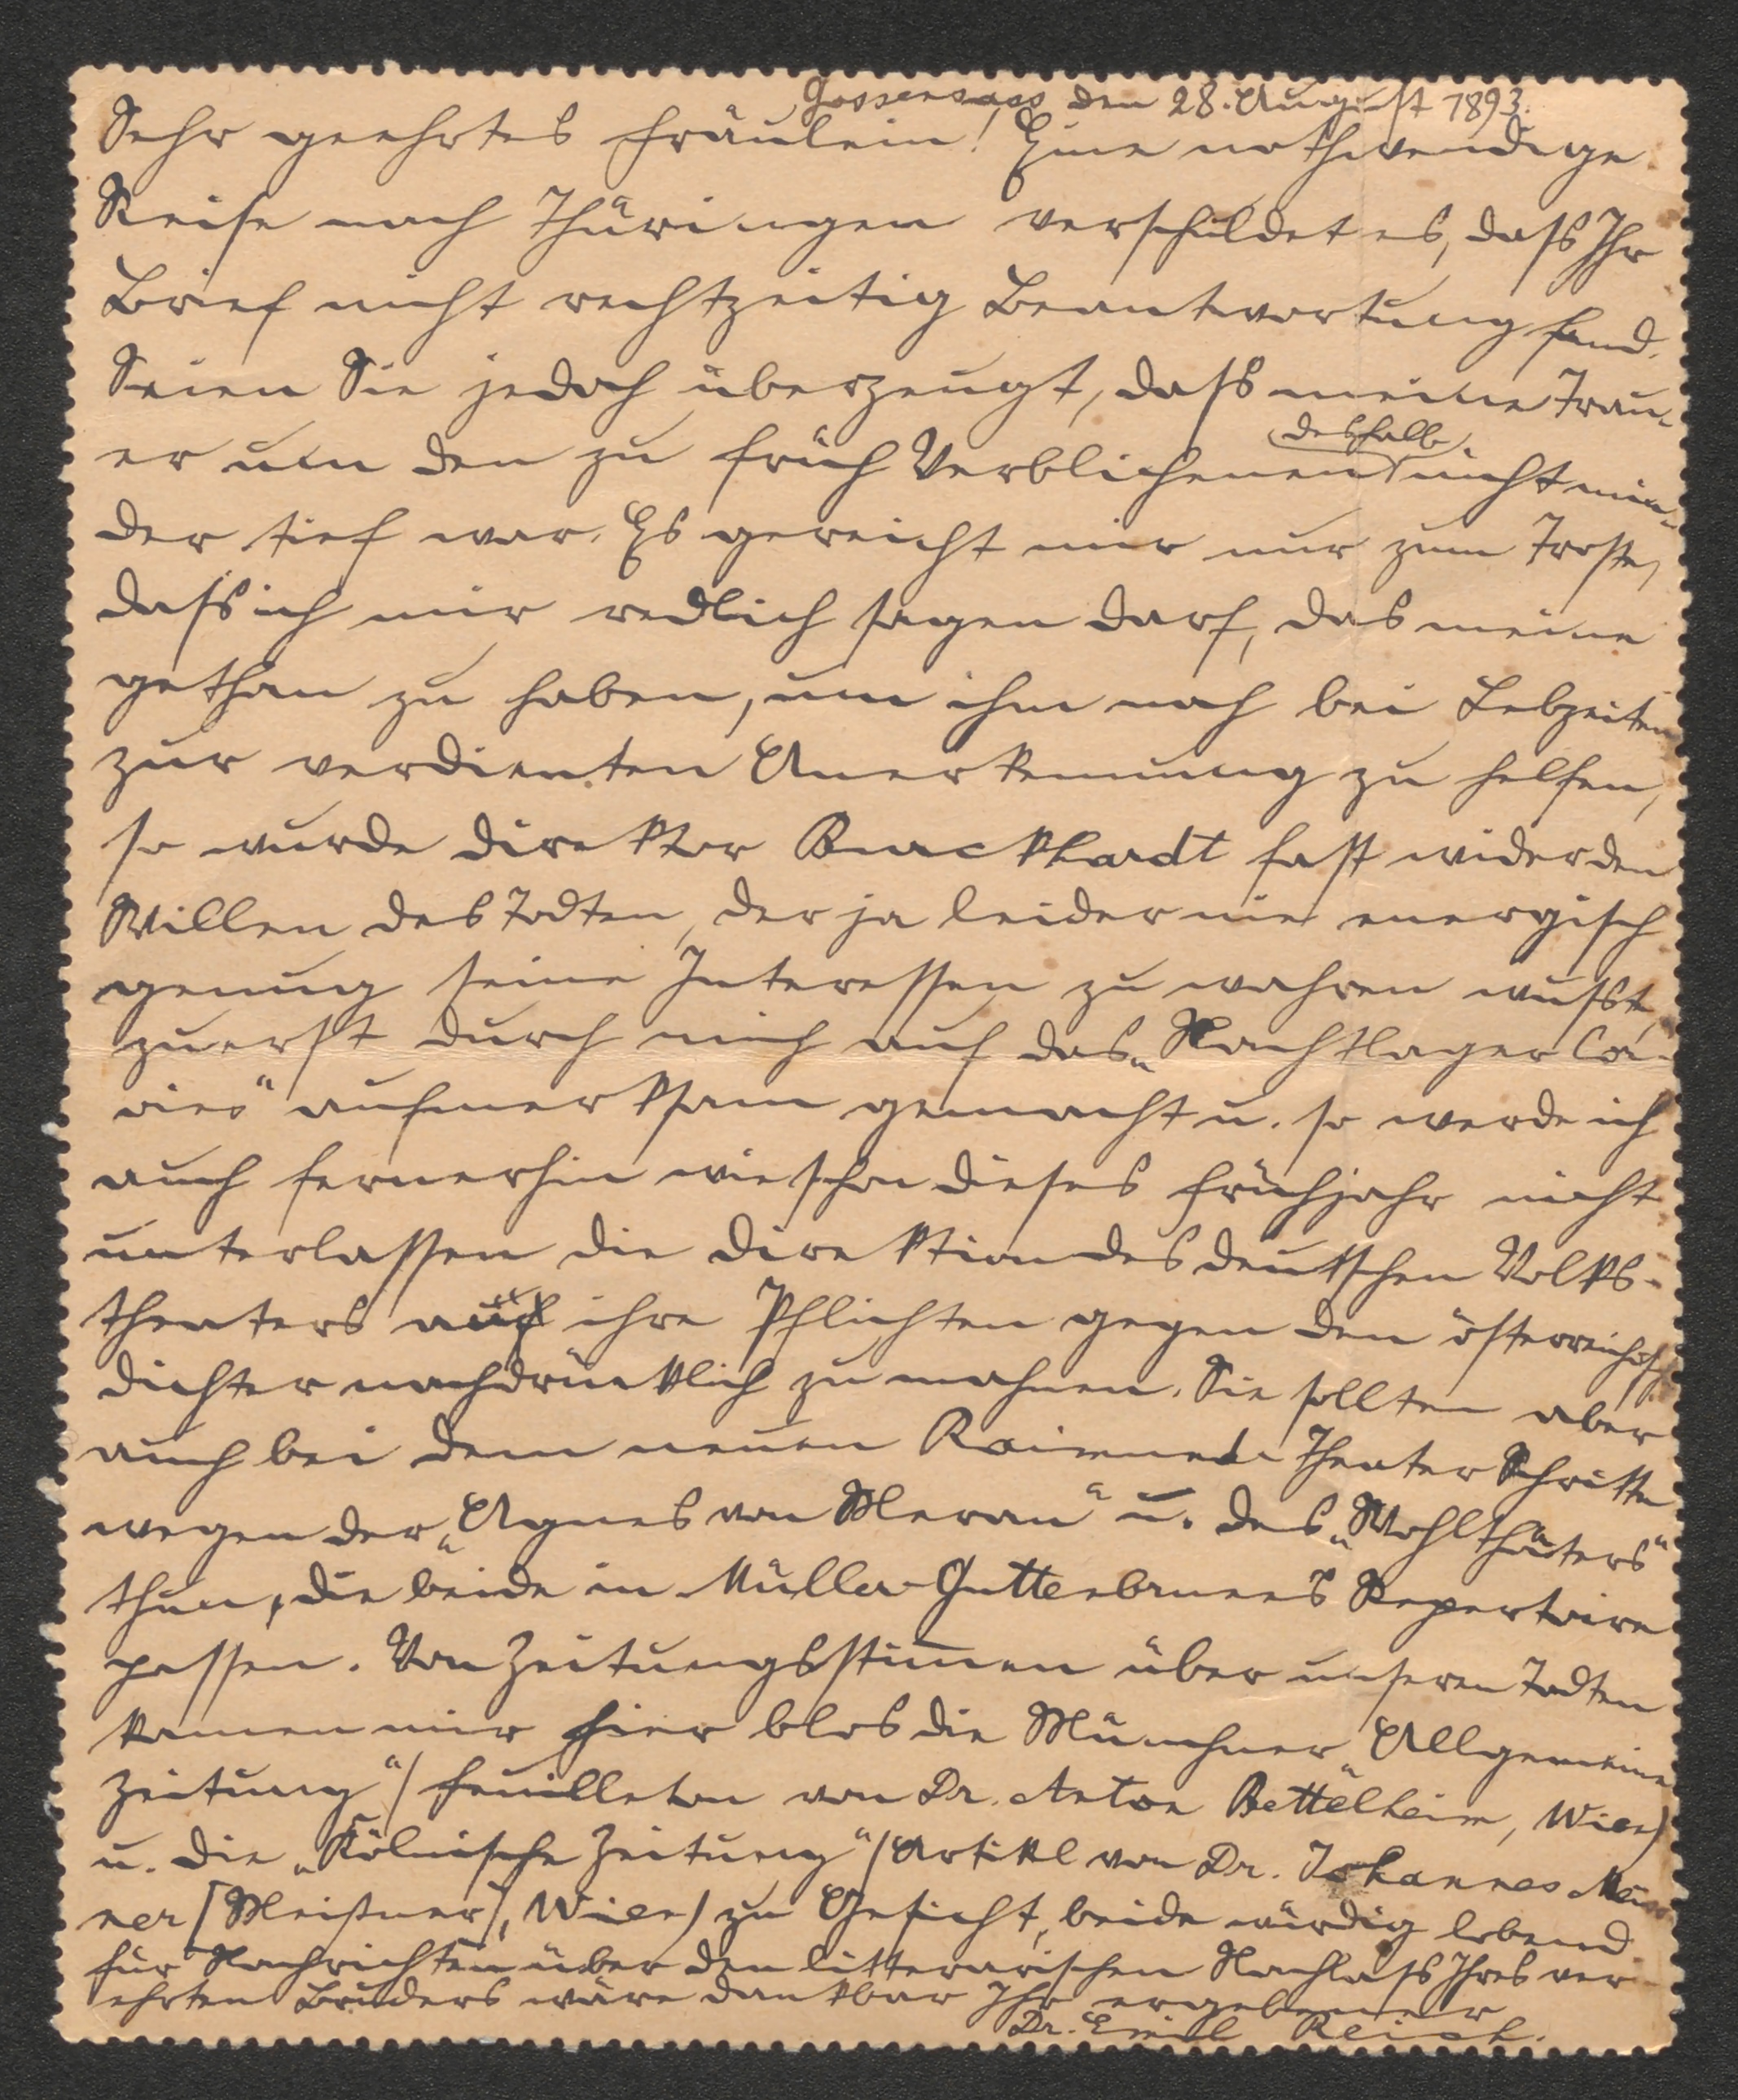 Gossensass, den 28. August 1893.
Sehr geehrtes Fräulein! Eine nothwendige
Reise nach Thüringen verschuldet es, dass Ihr
Brief nicht rechtzeitig Beantwortung fand.
Seien Sie jedoch überzeugt, dass meine Trau-
er um den zu früh Verblichenen deshalb nicht min-
der tief war. Es gereicht mir nur zum Troste,
dass ich mir redlich sagen darf, das meine
gethan zu haben, um ihm noch bei Lebzeiten
zur verdienten Anerkennung zu helfen,
so wurde Direktor Burckhardt fast wider den
Willen des Todten, der ja leider nie energisch
genug seine Interessen zu wahren wusste,
zuerst durch mich auf das „Nachtlager Cor-
vins" aufmerksam gemacht u. so werde ich
auch fernerhin wie schon dieses Frühjahr nicht
unterlassen die Direktion des deutschen Volks-
theaters auf ihre Pflichten gegen den österreichisch
Dichter nachdrücklich zu mahnen. Sie sollten aber
auch bei dem neuen Raimund-Theater Schritte
wegen der „Agnes von Meran" u. des „Wohlthäters"
thun, die beide in Müller-Guttenbrunns Repertoire
passen. Von Zeitungsstimmen über unseren Todten
kamen mir hier blos die Münchner „Allgemeine
Zeitung" (Feuilleton von Dr. Anton Bettelheim, Wien)
u. die „Kölnische Zeitung" (Artikel von Dr. Johannes Meiss-
ner [Meißner], Wien) zu Gesicht, beide würdig lobend.
Für Nachrichten über den litterarischen Nachlass Ihres ver-
ehrten Bruders wäre dankbar Ihr ergebener
Dr. Emil Reich.